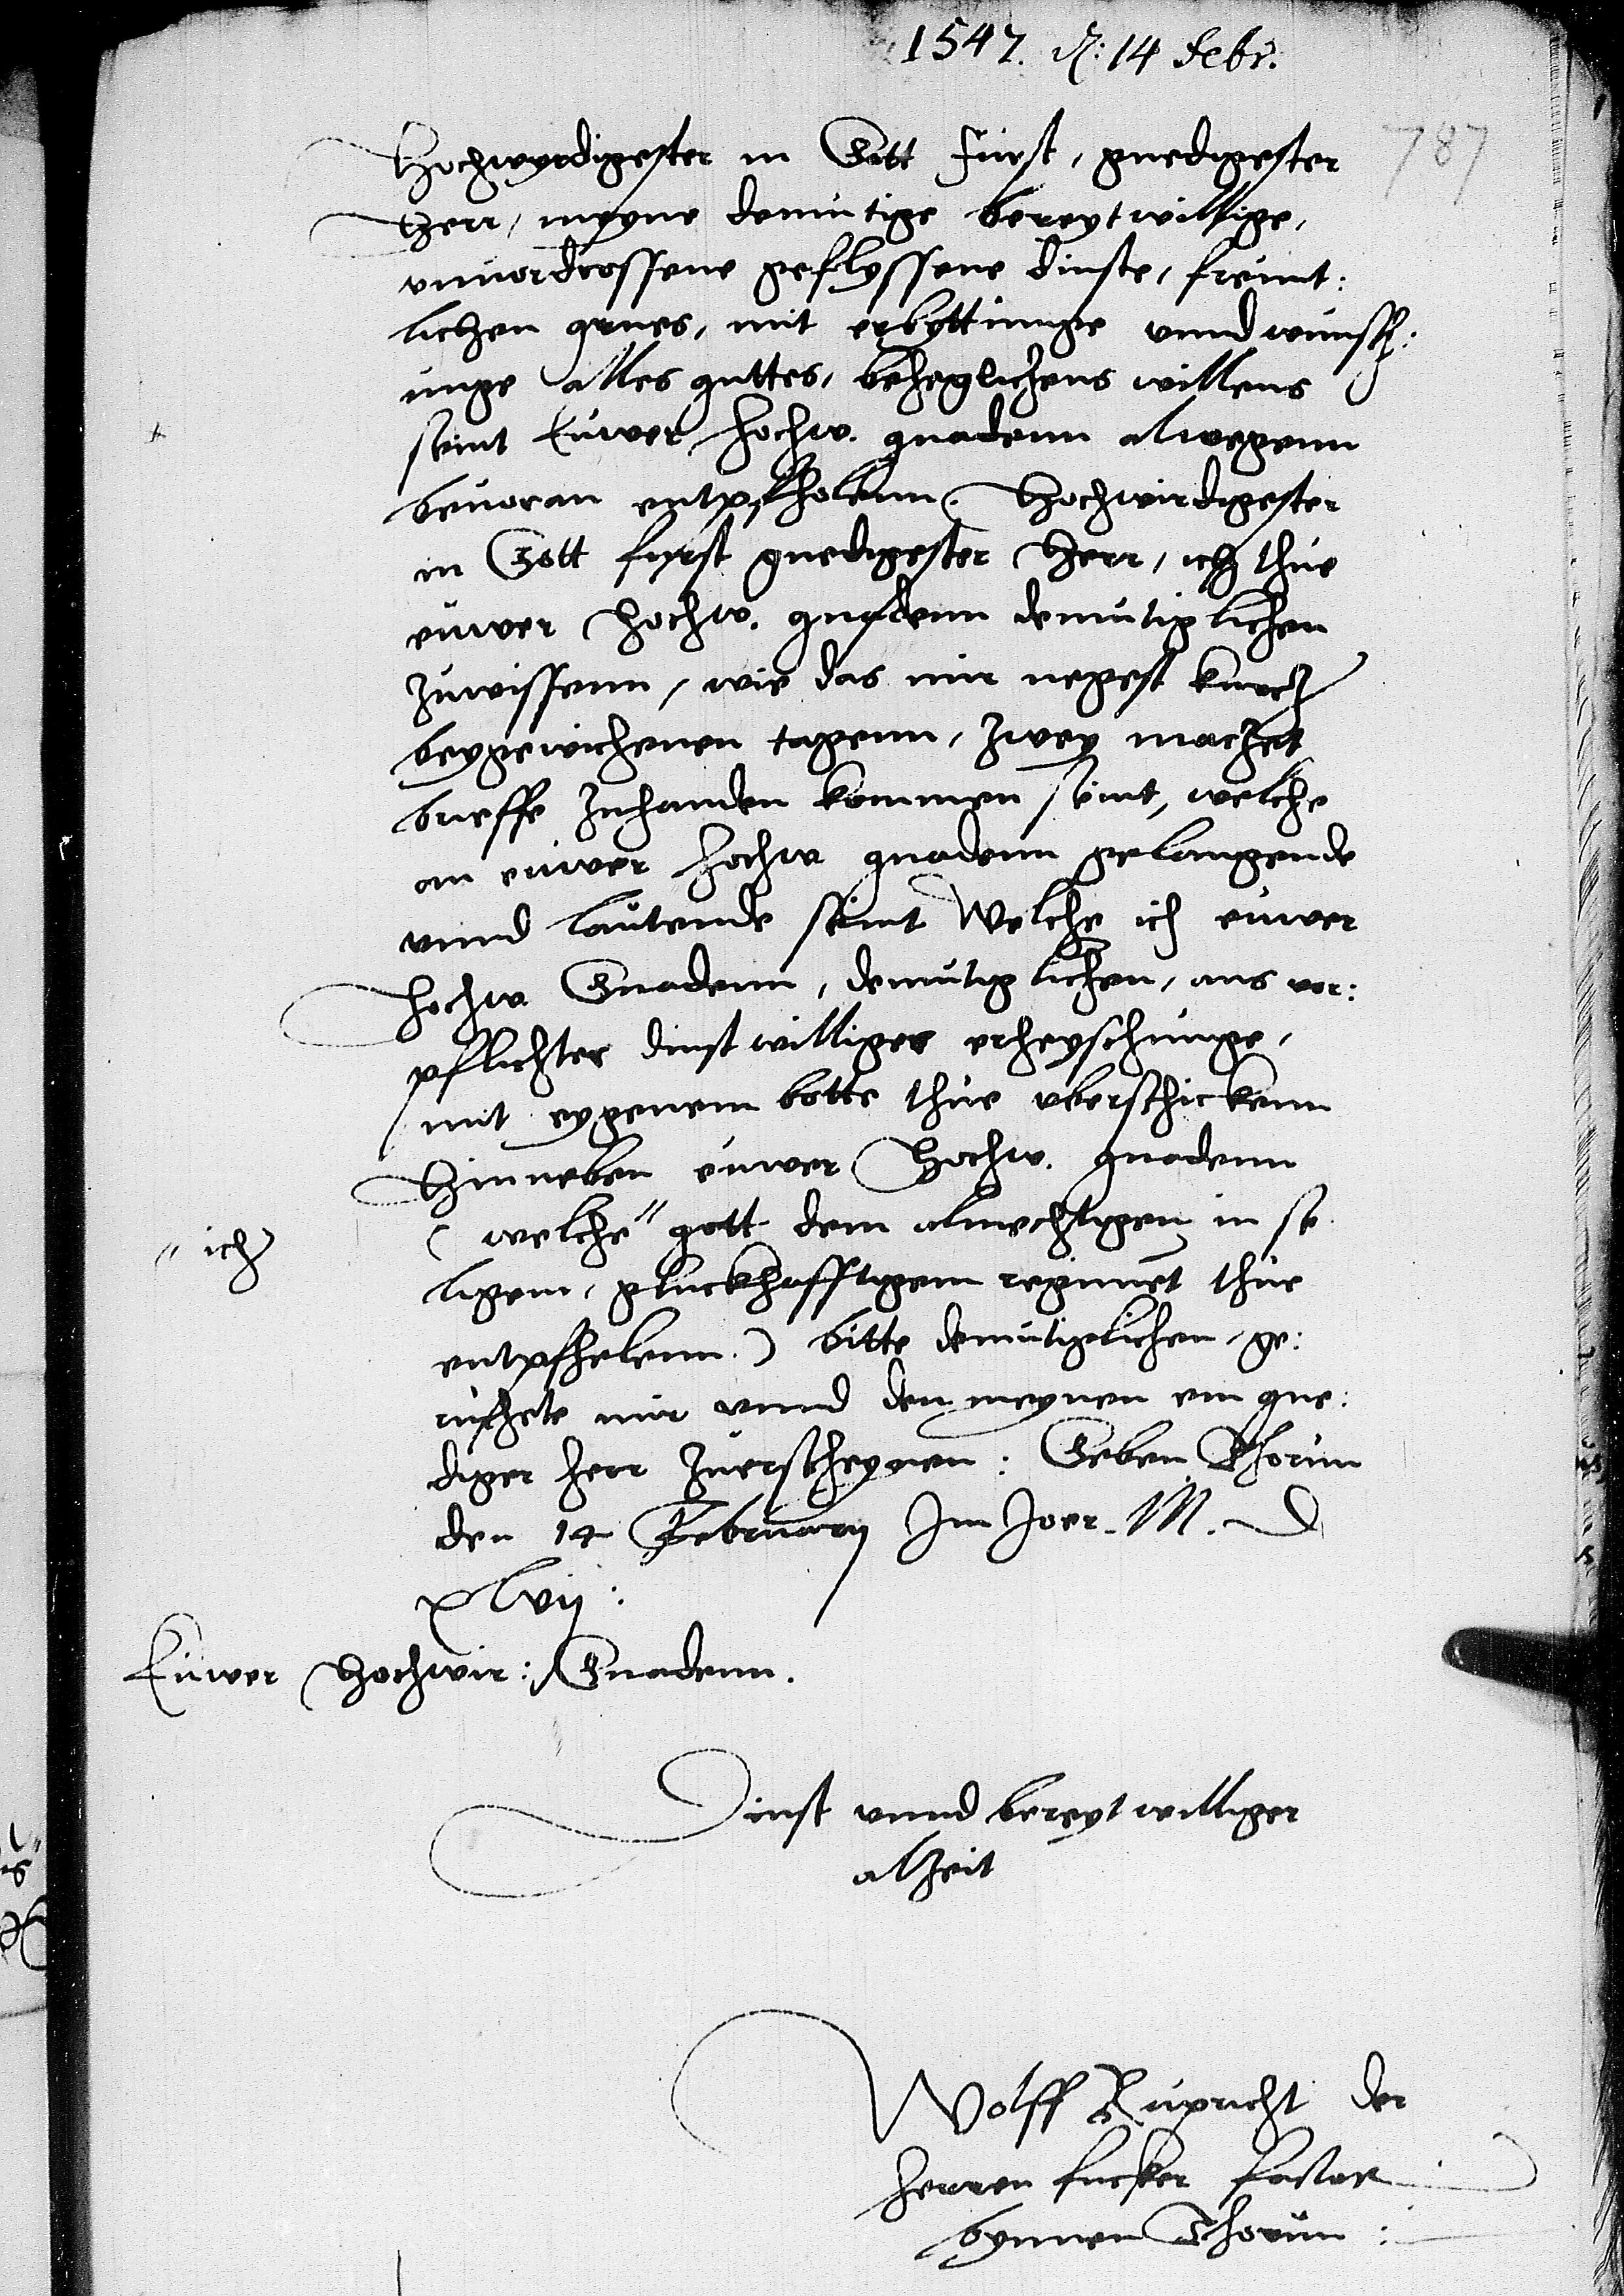 1547. d: 14 Febr.
787
Hochwyrdigester in Gott Fürst, gnedigester
Herr, meyne demutige bereytwillige,
vnuordrossene geflyssene dinste, freunt:
lichen grues, mit erbyttunge vnnd wunsch:
unge alles guttes, beheglichens willens
seint Euwer hochw. gnadenn alwegenn
beuoran entpfholenn. Hochwirdigester
in Gott fyrst gnedigester Herr, ich thue
euwer Hochw. gnadenn demutiglichen
zuwissenn, wie das mir negest kurcz
beygewichenen tagenn, zwey
brieffe zuhanden kommen seint, welche
an euwer hochw gnadenn gelangende
vnnd lautende seint Welche ich euwer
Hochw Gnadenn, demutiglichen, aus vor:
pflichter dinstwilliger erheyschunge,
mit eygenem botte thue vberschickenn
Hinneben euwer Hochw. gnadenn
( welche " gott dem almechtigen in se
" ich
ligem, gluckhafftigem regiment thue
entpfhelenn.) bitte demutiglichen, ge:
ruchete mir vnnd den meynen ein gne:
diger herr zuerscheynen: Geben Thorun
den 14 February Im Joer. M. D
xlvij:
Euwer Hochwir: Gnadenn.
Dinst vnnd bereytwilliger
alzeit
Wolff Rupricht der
herren fucker factor
bynnen Thorun: